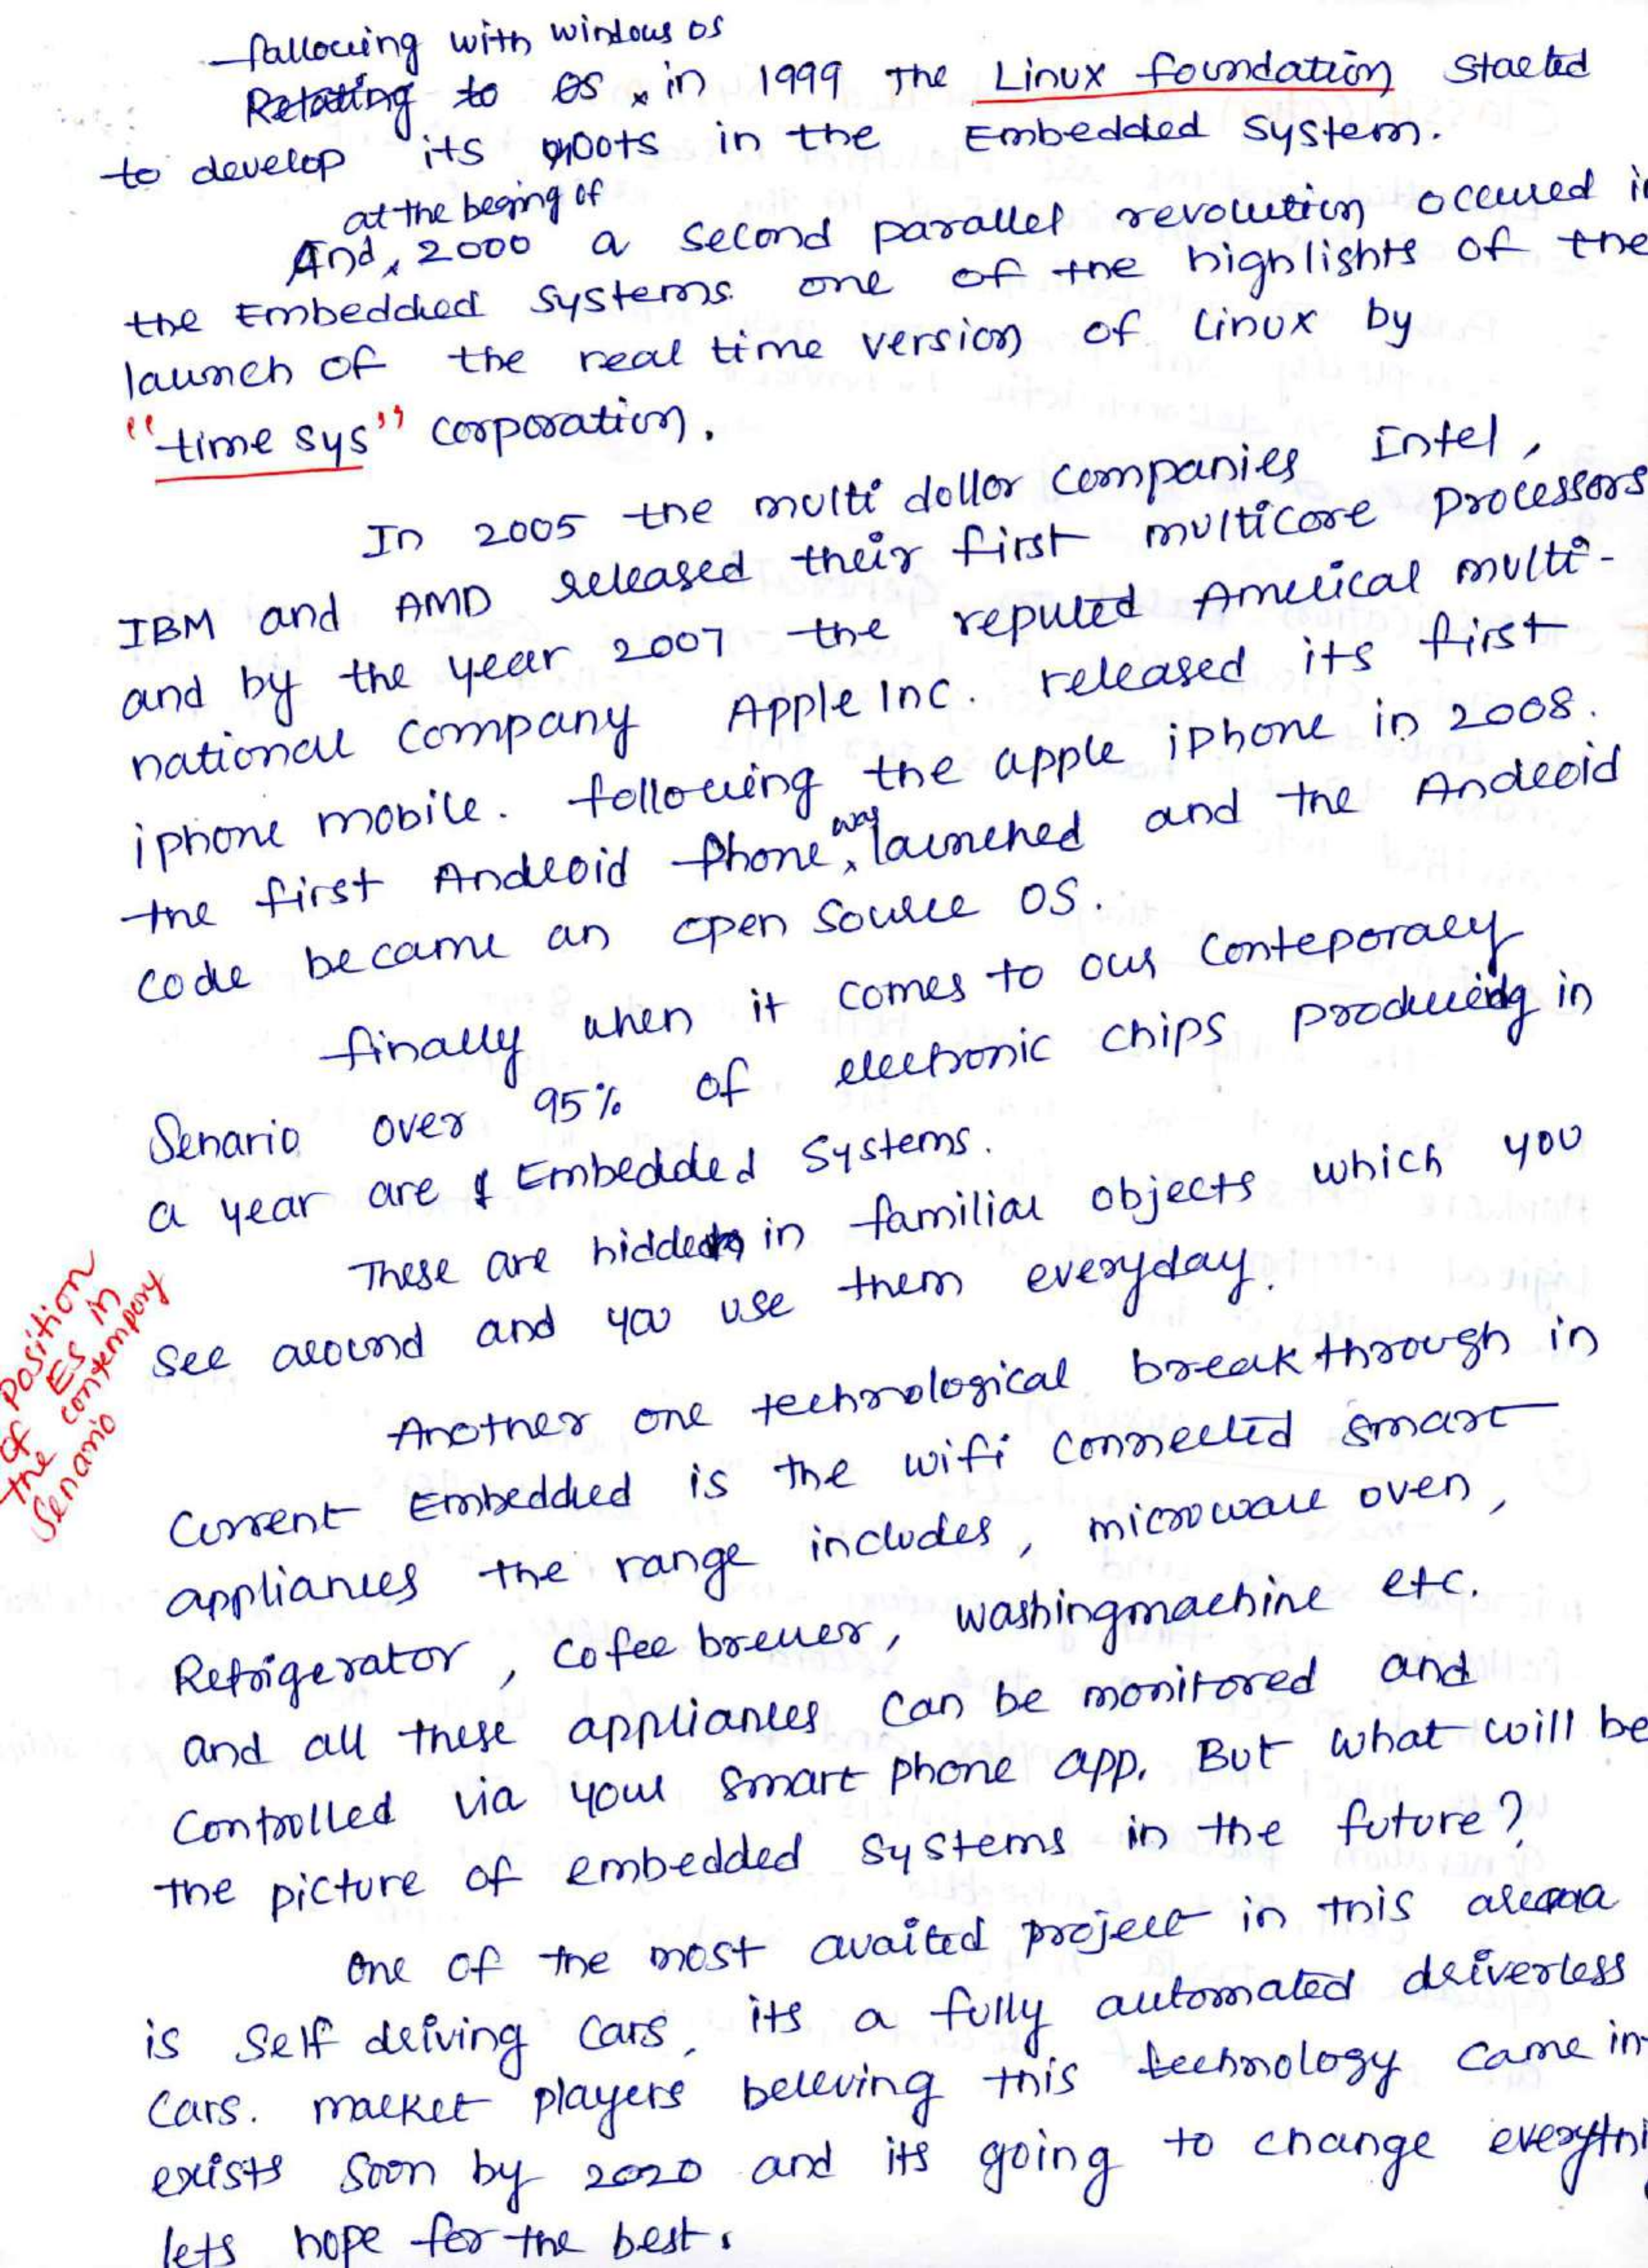 fallowing with windows os
Relating to OS in 1999 The Linux foundation started
to develop its roots in the Embedded System.
at the begining of
And 2000 a second parallel revolution occured in
the Embedded Systems. one of the highlights of the
launch of the real time version of Linux by
"time sys" corporation.
In 2005 the multi dollor companies Intel,
IBM and AMD released their first multicore processors
and by the year 2007 the reputed Americal multi-
national company Apple Inc. released its first
iphone mobile. following the apple iphone in 2008.
the first Android Phone was launched and the Android
code became an open source OS.
finally when it comes to our conteporary
Senario over 95% of electronic chips producing in
a year are Embedded Systems.
These are hidden in familiar objects which you
see around and you use them everyday.
Position
of ES in
the contempory
Senario
Another one technological breakthrough in
Current Embedded is the wifi connected smart
appliances the range includes, microwave oven,
Refrigerator, Cofee brewer, washingmachine etc.
and all these appliances can be monitored and
Controlled via your smart phone app. But what will be
the picture of embedded systems in the future?
One of the most avaited project in this arena
is Self driving Cars, its a fully automated driverless
Cars. market players beleving this technology came in
exists soon by 2020 and its going to change everythi
lets hope for the best.